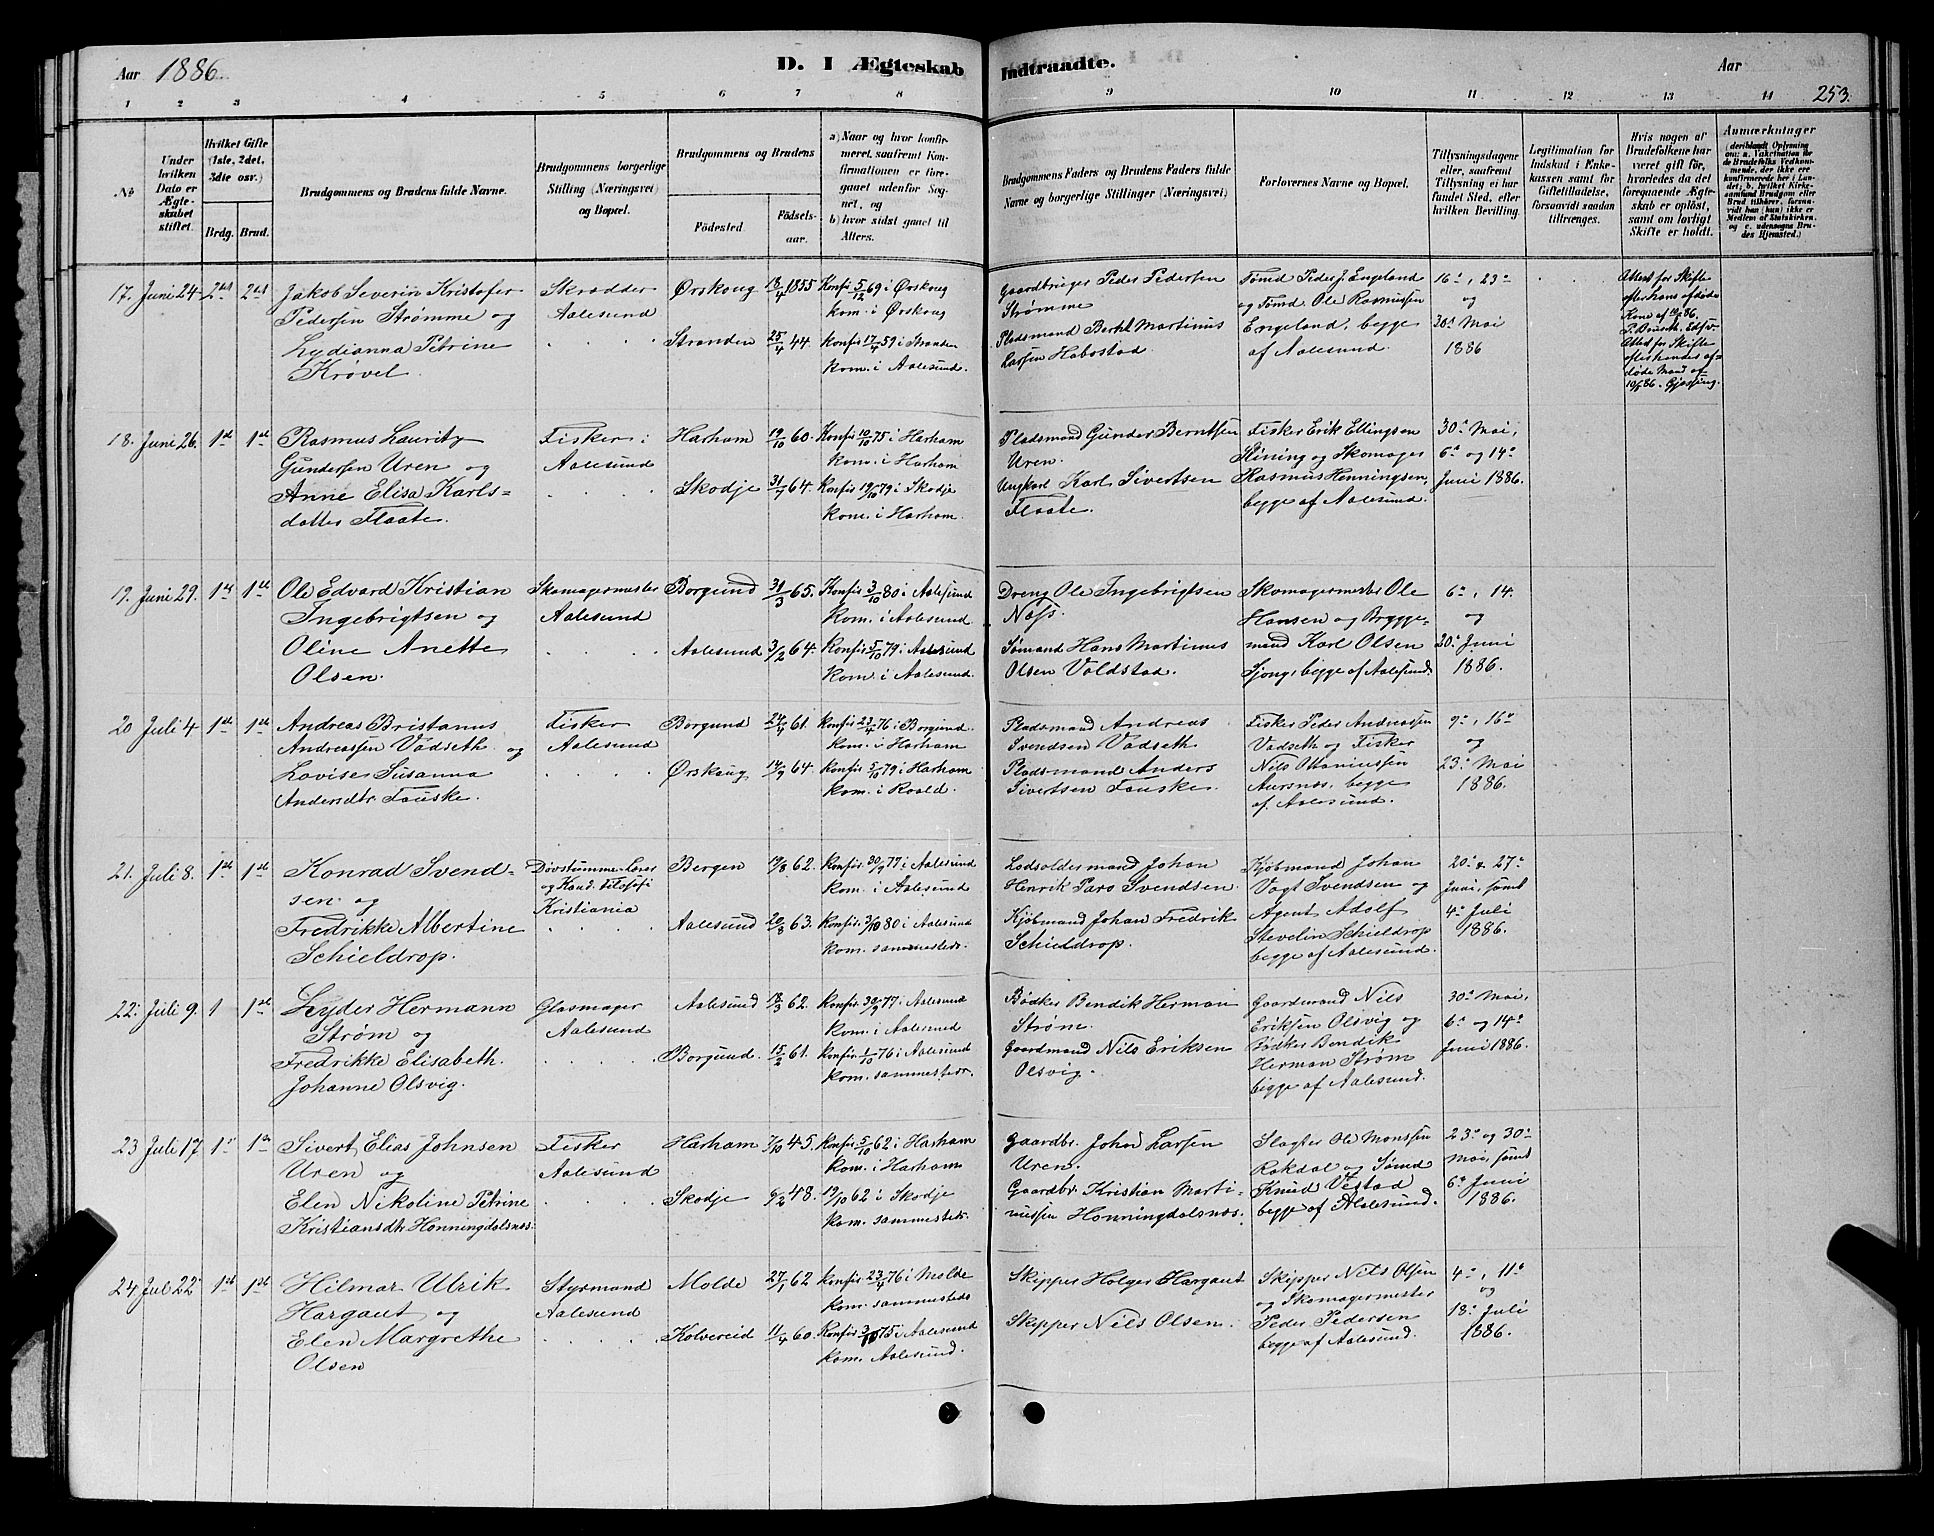 Aar 1886. D. I Ægteskab Indtraadte. Aar
1 2 3 4 5 6 7 8 9 10 11 12 13 14 253.
No
Under hvilken Dato er Ægteskabet stiftet.
Hvilket Gifte (1ste, 2det, 3die osv.)
Brdg. Brud.
Brudgommens og Brudens fulde Navne.
Brudgommens borgerlige Stilling (Næringsvei) og Bopæl.
Brudgommens og Brudens
Fødested.
Fødselsaar.
a) Naar og hvor konfirmeret, saafremt Konfirmationen er foregaaet udenfor Sognet, og
b) hvor sidst gaaet til Alters.
Brudgommens Faders og Brudens Faders fulde Navne og borgerlige Stillinger (Næringsvei)
Forlovernes Navne og Bopæl.
Tillysningsdagene eller, saafremt Tillysning ei har fundet Sted, efter hvilken Bevilling.
Legitimation for Indskud i Enkekassen samt for Giftetilladelse, forsaavidt saadan tiltrænges.
Hvis nogen af Brudefolkene har været gift før, hvorledes da det foregaaende Ægteskab er opløst, samt om lovligt Skifte er holdt.
Anmærkninger (deriblandt Oplysning om: a. Vakcination for de Brudefolks Vedkommende, der ikke ere konfirmerede her i Landet; b. hvilket Kirkesamfund Brudgom eller Brud tilhører, forsaavidt han (hun) ikke er Medlem af Statskirken, og c. udensogns Brudes Hjemsted.)
17. Juni 24. 2det 2det
Jakob Severin Kristofer
Pedersen Strømme og
Lydianna Petrine
Krøvel.
Skrædder
Aalesund
Ørskoug 18/4 1855
Stranden 25/4 44.
Konfir 5/12 69 i Ørskoug
kom. i Ørskoug
konfir 17/4 59 i Stranden
kom. i Aalesund.
Gaardbruger Peder Pedersen
Strømme
Pladsmand Berht Martinus
Larsen Habostad.
Tømd Peder J. Engeland
og Tømd. Ole Rasmussen
Engeland, begge
af Aalesund.
16de, 23de
og
30de Mai
1886
Attest for Skifte
efter hans afdøde
Kone af
Attest for Skifte
efter hendes af=
døde Mand af
18. Juni 26. 1ste 1ste
Rasmus Lauritz
Gundersen Uren og
Anne Elisa Karls=
datter Flaate.
Fisker i
Aalesund
Harham 19/10 60.
Skodje 31/7 64.
Konfir 10/10 75 i Harham
kom. i Harham
Konfir 19/10 79 i Skodje
kom. i Harham.
Pladsmand Gunder Berntsen
Uren.
Ungkarl Karl Sivertsen
Flaate.
Fisker Erik Ellingsen
Slining og Skomager
Rasmus Henningsen,
begge af Aalesund.
30de Mai,
6te og 14de
Juni 1886.
19. Juni 29. 1ste 1ste
Ole Edvard Kristian
Ingebrigtsen og
Oline Anette
Olsen.
Skomagermester
Aalesund
Borgund 31/3 65.
Aalesund 3/2 64.
Konfir 3/10 80 i Aalesund
kom. i Aalesund
Konfir 5/10 79 i Aalesund
kom. i Aalesund.
Dreng Ole Ingebrigtsen
Næss.
Sømand Hans Martinus
Olsen Voldstad.
Skomagermester Ole
Hansen og Brygge=
mand Karl Olsen
Sjong, begge af Aalesund.
6te, 14.
og
20de Juni
1886.
20 Juli 4 1ste 1ste
Andreas Bristanus
Andreassen Vadseth og
Lovise Susanna
Andersdtr. Fauske.
Fisker
Aalesund
Borgund 24/4 61.
Ørskoug 14/9 64.
Konfir 23/4 76 i Borgund
kom. i Harham
Konfir 5/10 79 i Harham
kom. i Roald.
Pladsmand Andreas
Svendsen Vadseth
Pladsmand Anders
Sivertsen Fauske.
Fisker Peder Andreassen
Vadseth og Fisker
Nils Ottoniussen
Aursnes, begge
af Aalesund.
9de, 16de
og
23de Mai
1886.
21. Juli 8. 1ste 1ste
Konrad Svend=
sen og
Fredrikke Albertine
Schieldrop.
Døvstumme-Lærer
og Kand. Filosofi
Kristiania
Bergen 19/8 62.
Aalesund 20/8 63.
Konfir. 30/9 77 i Aalesund
kom. i Aalesund
Konfir. 3/10 80 i Aalesund
kom. sammesteds.
Lodsoldermand Johan
Henrik Pars Svendsen.
Kjøbmand Johan Fredrik
Schieldrop.
Kjøbmand Johan
Vogt Svendsen og
Agent Adolf
Stevelin Schieldrop
begge af Aalesund.
20de & 27de
Juni, samt
4de Juli
1886.
22. Juli 9. 1 1ste
Lyder Hermann
Strøm og
Fredrikke Elisabeth
Johanne Olsvig.
Glasmager
Aalesund
Aalesund 18/3 62.
Borgund. 15/2 61.
Konfir 30/9 77 i Aalesund
kom. i Aalesund
Konfir 1/10 76 i Aalesund
kom. sammesteds.
Bødker Bendik Herman
Strøm.
Gaardmand Nils Eriksen
Olsvig.
Gaardmand Nils
Eriksen Olsvig og
Bødker Bendik
Herman Strøm
begge af Aalesund.
30de Mai,
6te og 14de
Juni 1886.
23 Juli 17 1ste 1ste
Sivert Elias Johnsen
Uren og
Elen Nikoline Petrine
Kristiansdtr Honningdalsnes
Fisker
Aalesund
Harham 7/10 45.
Skodje 6/2 48.
Konfir 5/10 62 i Harham
kom. i Harham
19/10 62 i Skodje
kom. sammesteds.
Gaardbr. John Larsen
Uren.
Gaardbr. Kristian Marti=
nussen Honningdalsnes.
Slagter Ole Monssen
Rokdal og Sømd
Knud Vestad
begge af Aalesund.
23de og 30de
Mai, samt
6te Juni
1886.
24 Juli 22 1ste 1ste
Hilmar Ulrik
Hargaut og
Elen Margrethe
Olsen
Styrmand
Aalesund
Molde 27/1 62
Kolvereid 11/4 60.
Konfir 23/4 76 i Molde
kom. sammesteds
Konfir 3/10 75 i Aalesund
kom. Aalesund.
Skipper Holger Hargaut
Skipper Nils Olsen.
Skipper Nils Olsen
og Skomagermester
Peder Pedersen
begge af Aalesund.
4de, 11te
og
18de Juli
1886.